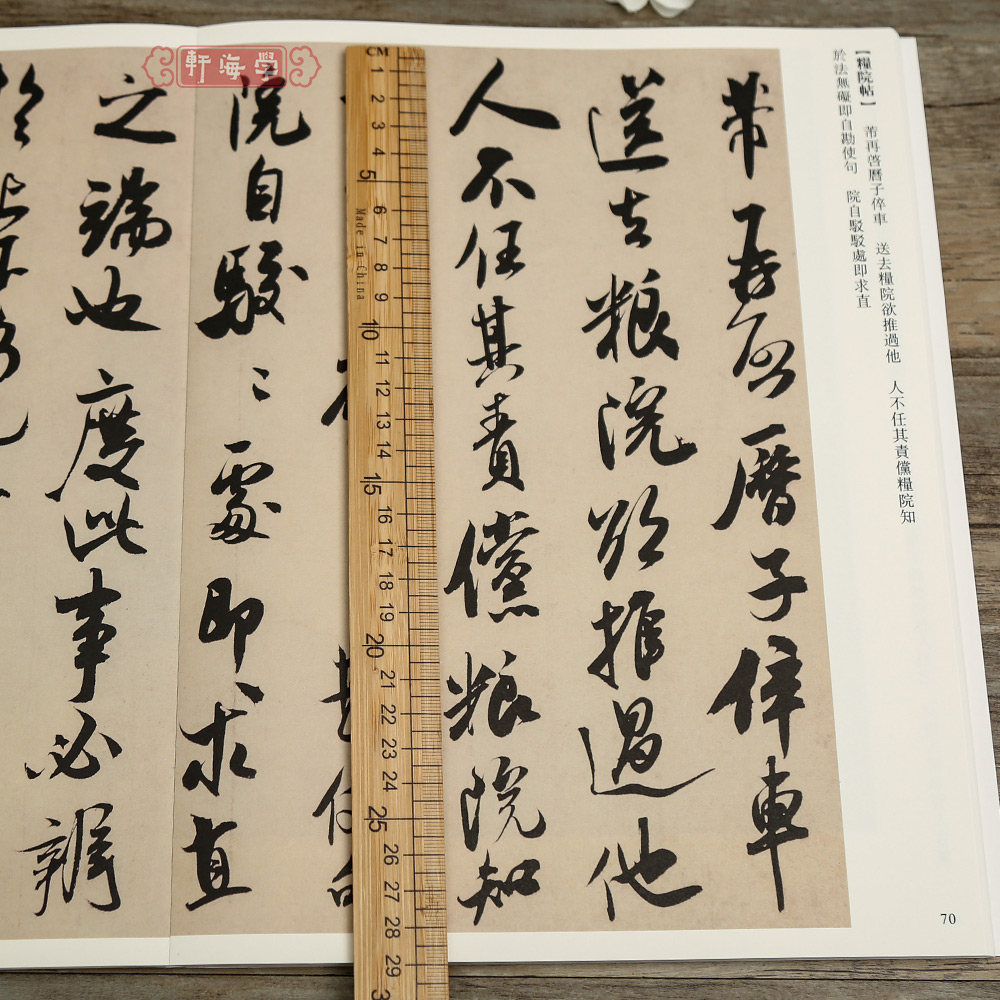 軒海学
【糧院帖】 芾再啓曆子倅車 送去糧院欲推過他 人不任其責儻糧院知
於法無礙即自勘使句 院自駁駁處即求直
芾再啓曆子倅車
送去粮院欲推過他
人不任其責儻粮院知
院自駮〻處即求直
之端也度此事必辨
CM
1
2
3
4
5
6
7
8
9
10
11
12
13
14
15
16
17
18
19
20
21
22
23
24
25
26
27
28
29
Made in China
70